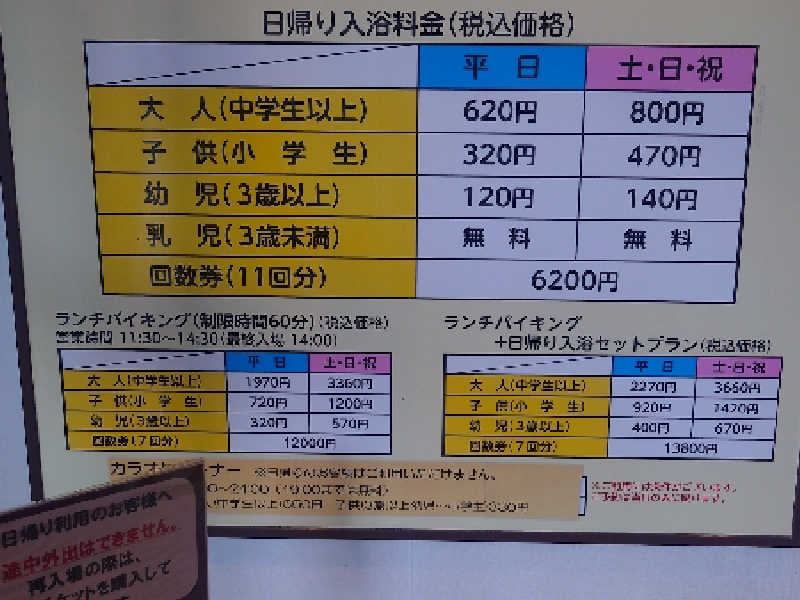 日帰り入浴料金(税込価格)
平 日 土・日・祝
大 人(中学生以上) 620円 800円
子 供(小 学 生) 320円 470円
幼 児(3歳以上) 120円 140円
乳 児(3歳未満) 無 料 無 料
回数券(11回分) 6200円
ランチバイキング(制限時間60分)(税込価格)
営業時間 11:30〜14:30(最終入場 14:00)
平 日 土・日・祝
大 人(中学生以上) 1970円 3360円
子 供(小 学 生) 720円 1200円
幼 児(3歳以上) 320円 570円
回数券(7回分) 12000円
ランチバイキング
+日帰り入浴セットプラン(税込価格)
平 日 土・日・祝
大 人(中学生以上) 2270円 3660円
子 供(小 学 生) 920円 1420円
幼 児(3歳以上) 400円 670円
回数券(7回分) 13800円
カラオケ ナー
日帰り利用のお客様へ
途中外出はできません。
再入場の際は、
ケットを購入して